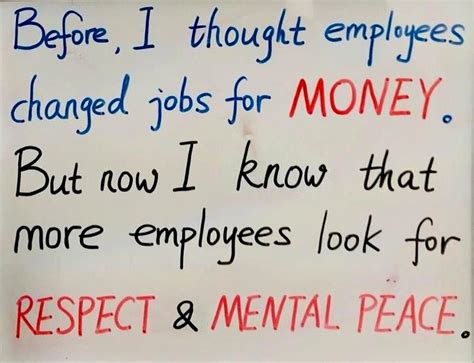 Before, I thought employees
changed jobs for MONEY.
But now I know that
more employees look for
RESPECT & MENTAL PEACE.